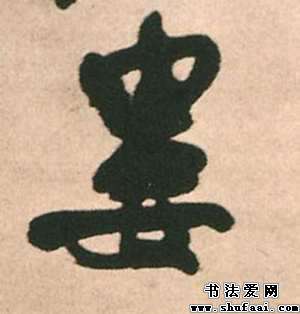 婁
书法爱网
www.shufaai.com